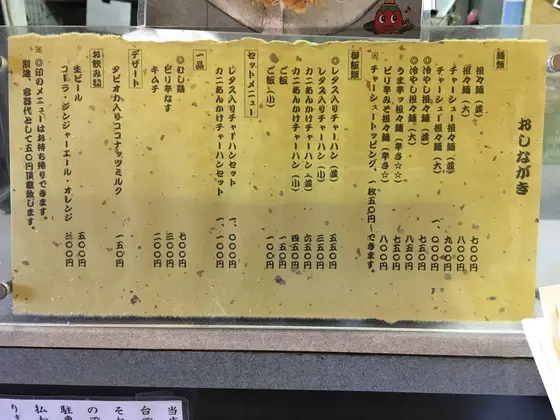 おしながき
麺類
担々麺（並） 七〇〇円
担々麺（大） 八〇〇円
チャーシュー担々麺（並） 九〇〇円
チャーシュー担々麺（大） 一、〇〇〇円
◎冷やし担々麺（並） 七五〇円
◎冷やし担々麺（大） 八五〇円
うま辛ッ担々麺（辛さ☆） 七五〇円
ピリ辛みそ担々麺（辛さ☆☆） 八〇〇円
※チャーシュートッピング、一枚五〇円〜できます。
御飯類
◎レタス入りチャーハン（並） 五五〇円
レタス入りチャーハン（小） 三五〇円
カニあんかけチャーハン（並） 六五〇円
カニあんかけチャーハン（小） 四五〇円
ご飯 一五〇円
ご飯（小） 一〇〇円
セットメニュー
レタス入りチャーハンセット 一、〇〇〇円
カニあんかけチャーハンセット 一、一〇〇円
一品
◎むし鶏 七〇〇円
ピリ辛なす 三〇〇円
キムチ 二〇〇円
デザート
タピオカ入りココナッツミルク 一五〇円
お飲み物
生ビール 五〇〇円
コーラ・ジンジャーエール・オレンジ 二〇〇円
※◎印のメニューはお持ち帰りできます。
別途、容器代として五〇円頂戴致します。